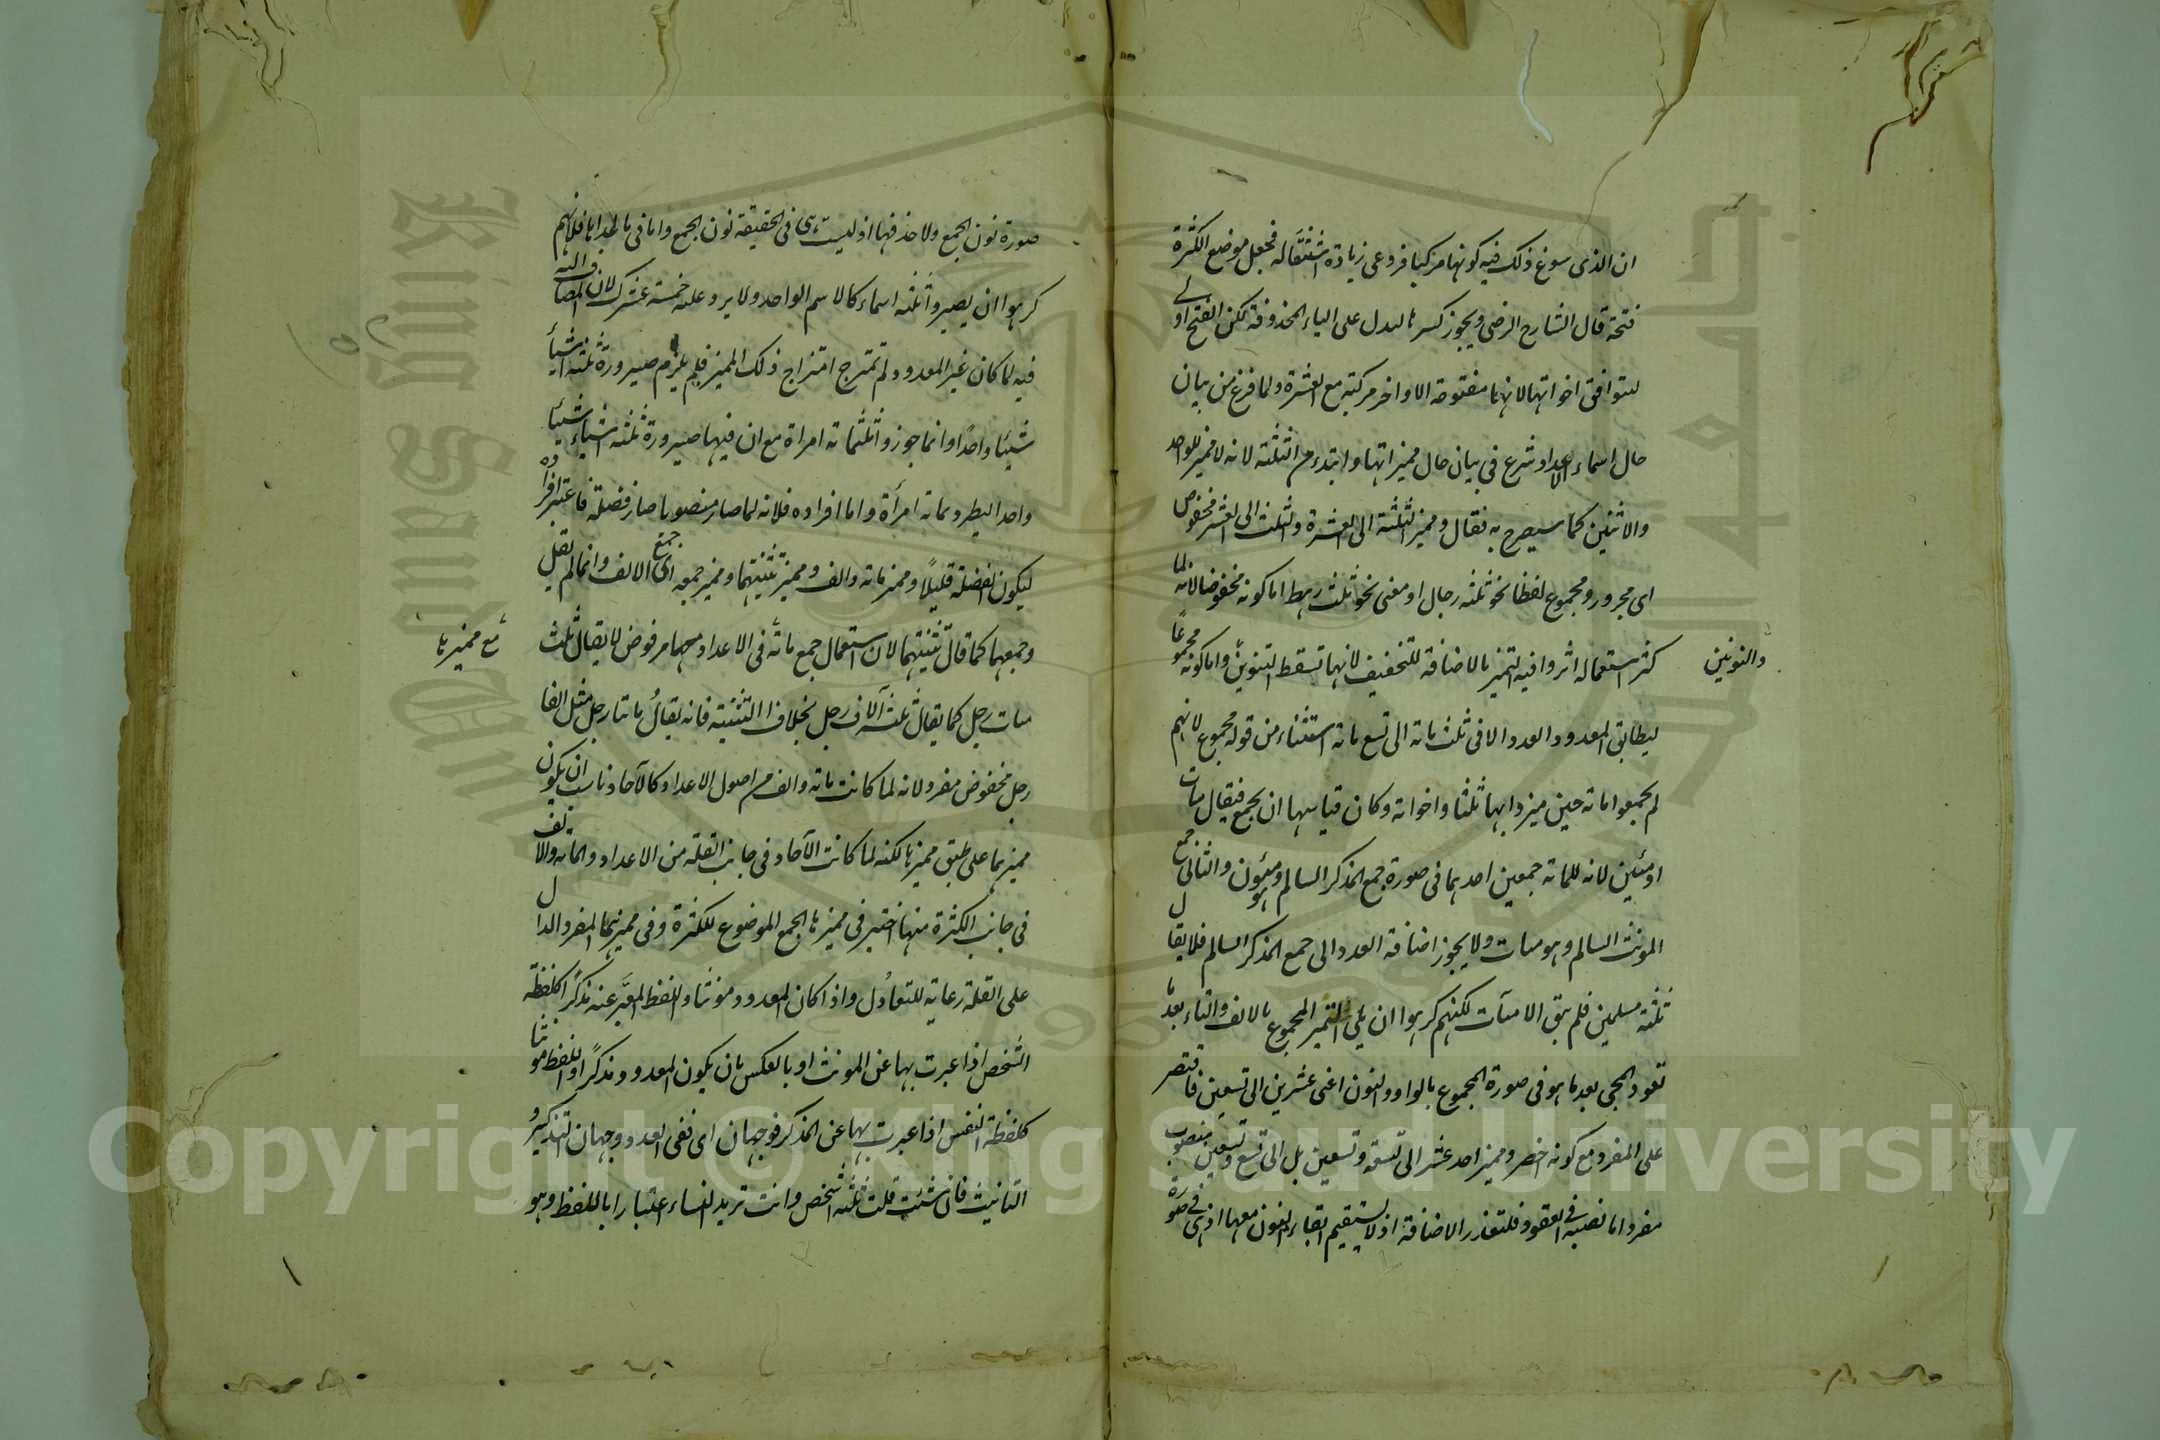 ان الذى سوغ ذلك فيه كونها مركبا فروعى زيادة استثقاله فجعل موضع الكثرة
فتحة قال الشارح الرضى ويجوز كسرها ليدل على الياء المحذوفة لكن الفتح اولى
ليوافق اخواتها لانها مفتوحة الاواخر مركبة مع العشرة ولما فرغ من بيان
حال اسماء الاعداد شرع فى بيان حال مميزاتها وابتدء من الثلثة لانه لا مميز للواحد
والاثنين كما سيصرح به فقال ومميز الثلثة الى العشرة والثلث الى العشر مخفوض
اى مجرور ومجموع لفظا نحو ثلثة رجال او معنى نحو ثلثة رهط اما كونه مخفوضا لانه لما
كثر استعماله اثروا فيه التميز بالاضافة للتخفيف لانها تسقط التنوين واما كونه مجموعًا
والنونين
ليطابق المعدود العدد الا فى ثلث مائة الى تسع مائة استثناء من قوله مجموع لانهم
لم يجمعوا مائة حين ميزوا بها ثلثا واخواته وكان قياسها ان يجمع فيقال مئات
او مئين لانه للمائة جمعين احدهما فى صورة جمع المذكر السالم وهو مئون والثانى جمع
المونث السالم وهو مئات ولا يجوز اضافة العدد الى جمع المذكر السالم فلا يقال
ثلثة مسلمين فلم يبق الا مئات لكنهم كرهوا ان يلى التميز المجموع بالالف والتاء بعد ما
تعود المجى بعد ما هو فى صورة المجموع بالواو والنون اعنى عشرين الى تسعين فاقتصر
على المفرد مع كونه اخصر ومميز احد عشر الى تسعة وتسعين بل الى تسع وتسعين منصوب
مفرد اما نصبه فى العقود فلتعذر الاضافة اذ لا يستقيم ابقاء النون معها اذ هى فى صورة
صورة نون الجمع ولا حذفها اذ ليست هى فى الحقيقة نون الجمع واما فى ما عداها فلانهم
كرهوا ان يصيروا ثلثة اسماء كالاسم الواحد ولا يرد عليه خمسة عشرك لان المضاف اليه
فيه لما كان غير المعدود لم تمتزج امتزاج ذلك المميز فلم يلزم صيرورة ثلثة اشياء
شيئا واحدا وانما جوزوا ثلثمائة امراة مع ان فيها صيرورة ثلثة اشياء شيئا
واحدا ليطرد بمائة امرأة واما افراده فلانه لما صار منصوبا صار فضلة فاعتبر افراده
ليكون الفضلة قليلًا ومميز مائة والف ومميز تثنيتهما ومميز جمعه اى جمع الالف وانما لم يقل
وجمعهما كما قال تثنيتهما لان استعمال جمع مائة فى الاعداد مرفوض لا يقال ثلث
مع مميزها
مئات رجل كما يقال ثلثة آلاف رجل بخلاف التثنية فانه يقال مائتا رجل مثل الفا
رجل مخفوض مفرد لانه لما كانت مائة والف من اصول الاعداد كالآحاد ناسب ان يكون
مميزهما على طبق مميزها لكنه لما كانت الآحاد فى جانب القلة من الاعداد والمائة والالف
فى جانب الكثرة منها اختير فى مميزها الجمع الموضوع للكثرة وفى مميزهما المفرد الدال
على القلة رعاية للتعادُل واذا كان المعدود مونثا واللفظ المعبّر عنه مذكرًا كلفظة
الشخص اذا عبرت بها عن المونث او بالعكس بان يكون المعدود مذكرًا واللفظ مونثا
كلفظة النفس اذا عبرت بها عن المذكر فوجهان اى ففى العدد وجهان التذكير و
التانيث فان شئت قلت ثلثة اشخص وانت تريد النساء اعتبارا باللفظ وهو
Copyright © King Saud University
King Saud University
1957